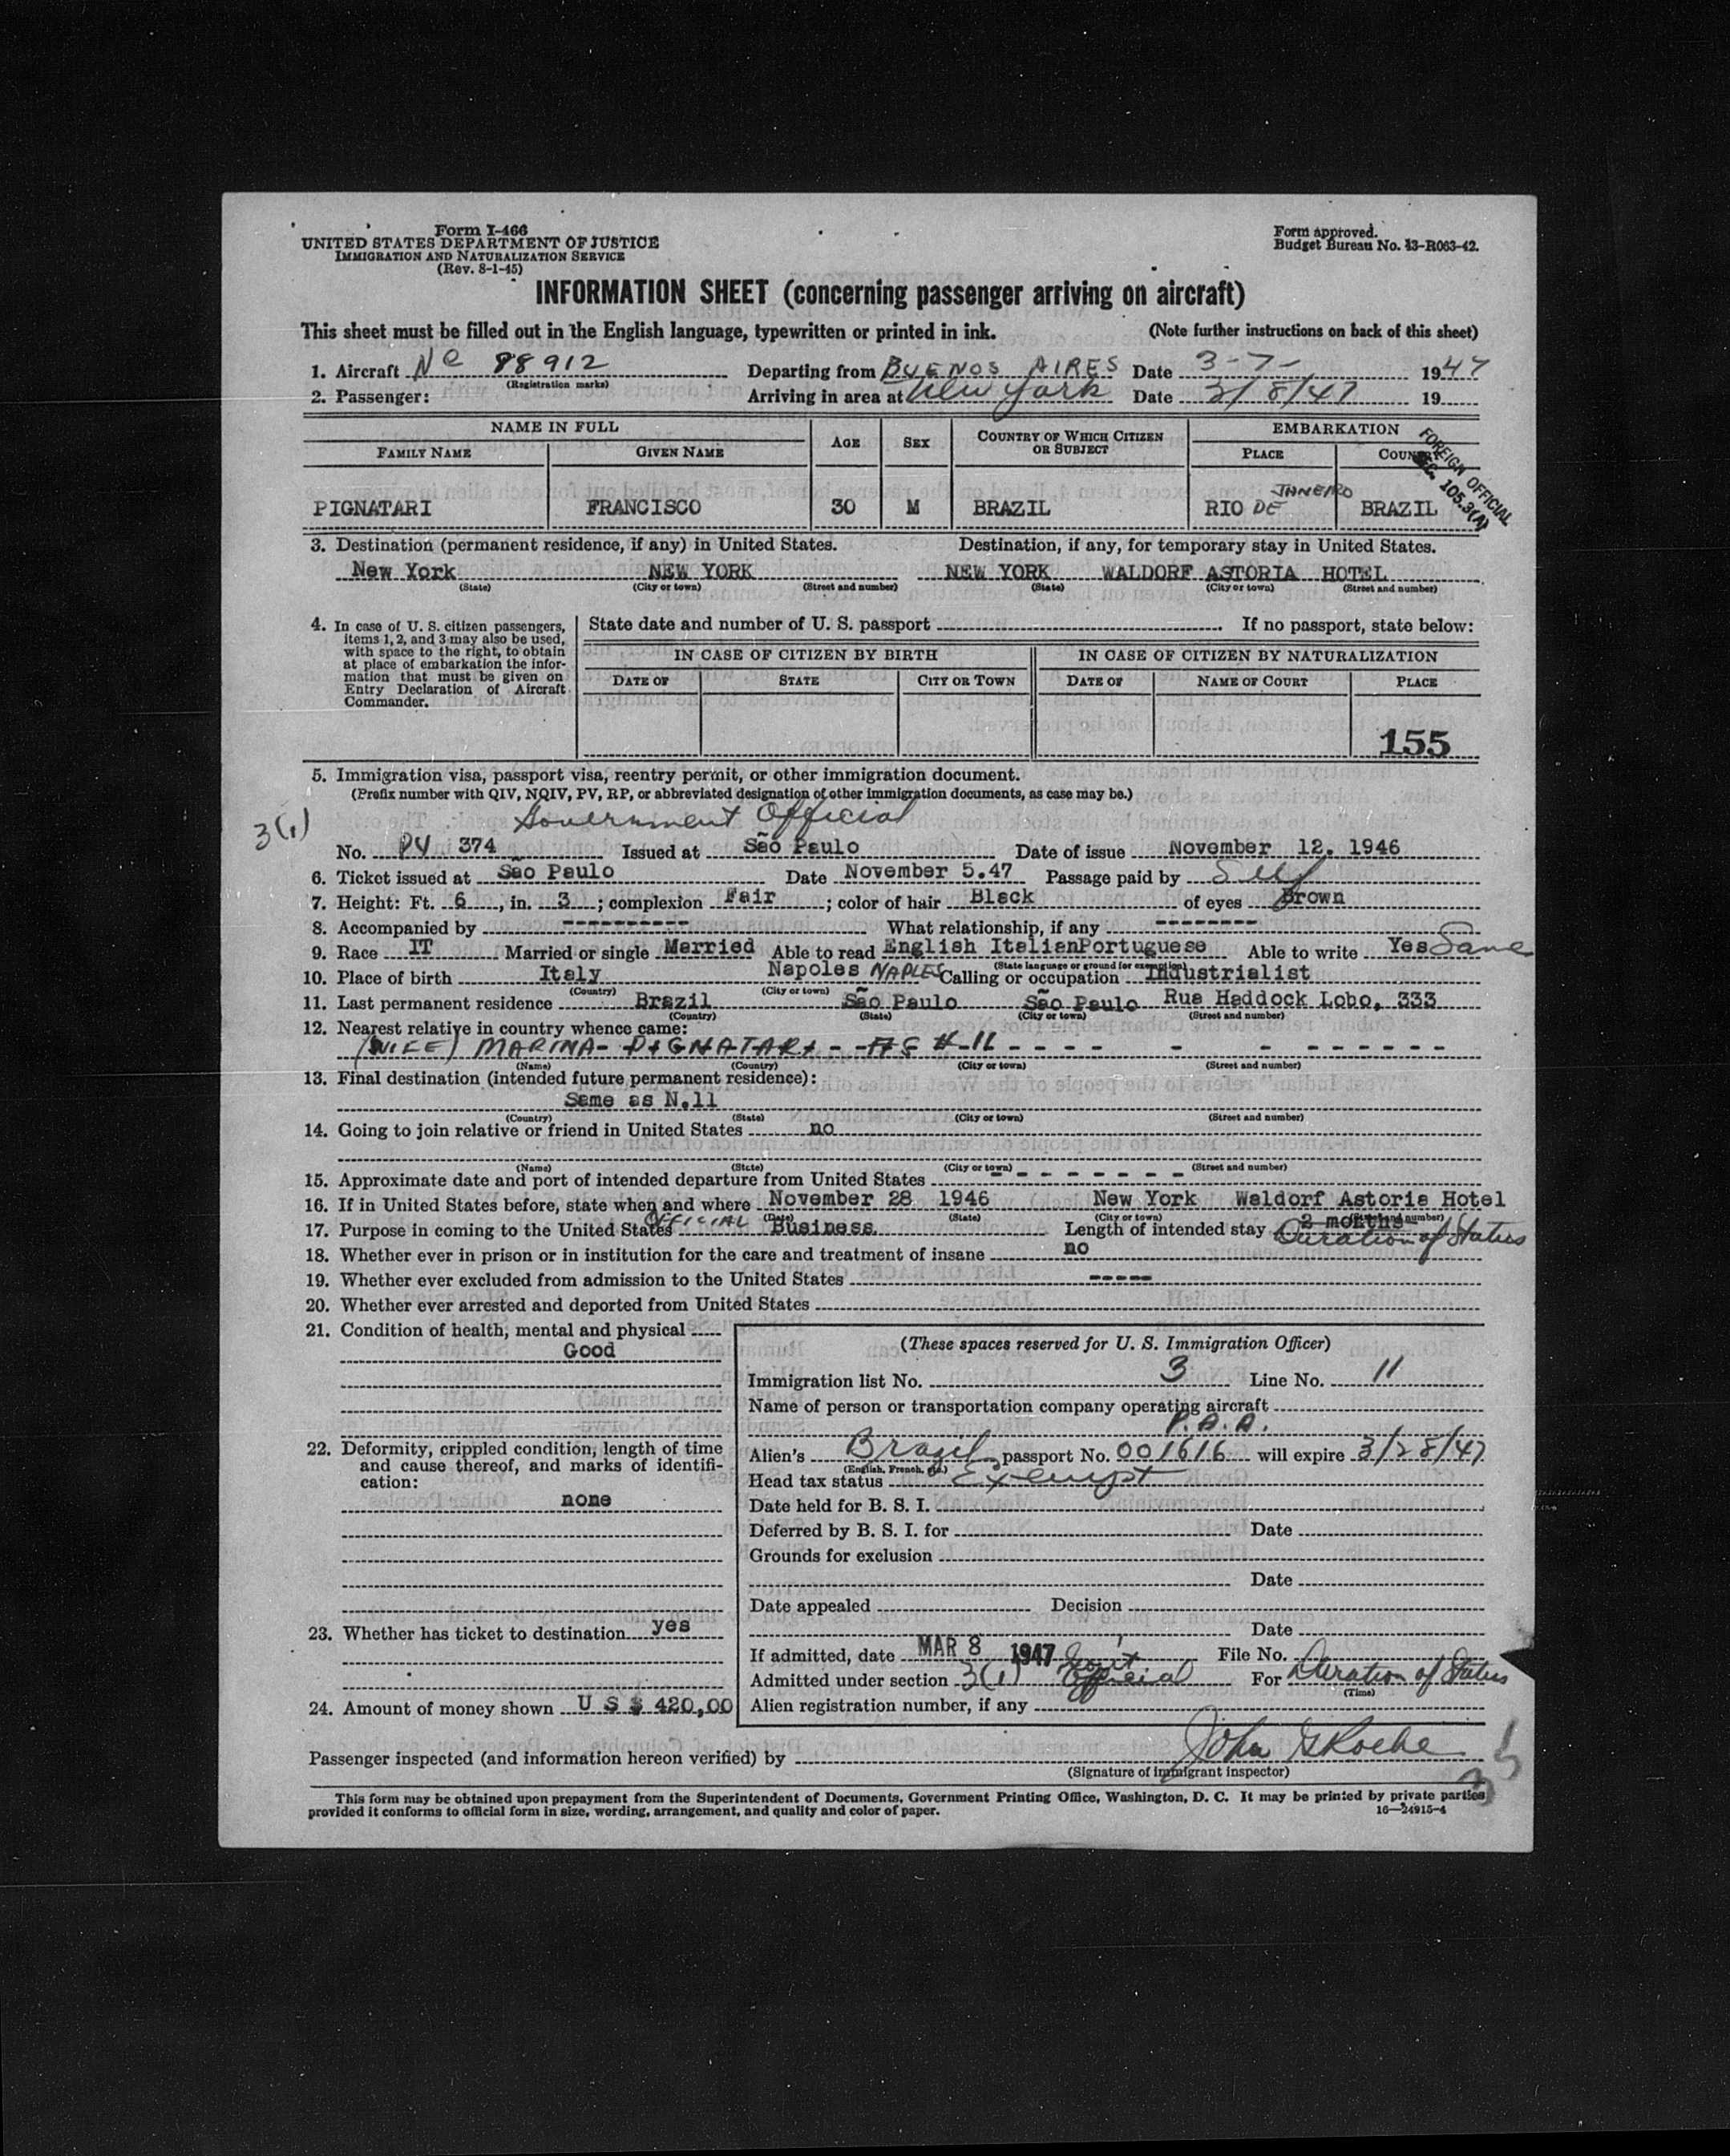 Form I-466
UNITED STATES DEPARTMENT OF JUSTICE
IMMIGRATION AND NATURALIZATION SERVICE
(Rev. 8-1-45)
Form approved.
Budget Bureau No. 43-R063-42.
INFORMATION SHEET (concerning passenger arriving on aircraft)
This sheet must be filled out in the English language, typewritten or printed in ink. (Note further instructions on back of this sheet)
1. Aircraft NC 88912 Departing from BUENOS AIRES Date 3-7- 1947
(Registration marks)
2. Passenger: Arriving in area at New York Date 3/8/47 19
NAME IN FULL AGE SEX COUNTRY OF WHICH CITIZEN OR SUBJECT EMBARKATION
FAMILY NAME GIVEN NAME PLACE COUNTRY
FOREIGN OFFICIAL
SEC. 105.3(A)
PIGNATARI FRANCISCO 30 M BRAZIL RIO DE JANEIRO BRAZIL
3. Destination (permanent residence, if any) in United States. Destination, if any, for temporary stay in United States.
New York NEW YORK NEW YORK WALDORF ASTORIA HOTEL
(State) (City or town) (Street and number) (State) (City or town) (Street and number)
4. In case of U. S. citizen passengers, items 1, 2, and 3 may also be used, with space to the right, to obtain at place of embarkation the information that must be given on Entry Declaration of Aircraft Commander.
State date and number of U. S. passport If no passport, state below:
IN CASE OF CITIZEN BY BIRTH IN CASE OF CITIZEN BY NATURALIZATION
DATE OF STATE CITY OR TOWN DATE OF NAME OF COURT PLACE
155
5. Immigration visa, passport visa, reentry permit, or other immigration document.
(Prefix number with QIV, NQIV, PV, RP, or abbreviated designation of other immigration documents, as case may be.)
3(1) Government Official
No. PV 374 Issued at São Paulo Date of issue November 12. 1946
6. Ticket issued at São Paulo Date November 5.47 Passage paid by Self
7. Height: Ft. 6, in. 3; complexion Fair; color of hair Black of eyes Brown
8. Accompanied by ---------- What relationship, if any --------
9. Race IT Married or single Married Able to read English ItalianPortuguese Able to write Yes Same
(State language or ground for exemption)
10. Place of birth Italy Napoles NAPLES Calling or occupation Industrialist
(Country) (City or town)
11. Last permanent residence Brazil São Paulo São Paulo Rua Haddock Lobo, 333
(Country) (State) (City or town) (Street and number)
12. Nearest relative in country whence came:
(WIFE) MARINA- PIGNATARI - AS #-11 - - - - - - - - - - -
(Name) (Country) (City or town) (Street and number)
13. Final destination (intended future permanent residence):
Same as N.11
(Country) (State) (City or town) (Street and number)
14. Going to join relative or friend in United States no
(Name) (State) (City or town) (Street and number)
15. Approximate date and port of intended departure from United States - - - - - - - -
16. If in United States before, state when and where November 28 1946 New York Waldorf Astoria Hotel
(Date) (State) (City or town) (Street and number)
17. Purpose in coming to the United States OFFICIAL Business. Length of intended stay 2 months Duration of Status
18. Whether ever in prison or in institution for the care and treatment of insane no
19. Whether ever excluded from admission to the United States -----
20. Whether ever arrested and deported from United States
21. Condition of health, mental and physical
Good
22. Deformity, crippled condition, length of time and cause thereof, and marks of identification:
none
23. Whether has ticket to destination yes
24. Amount of money shown U S $ 420,00
(These spaces reserved for U. S. Immigration Officer)
Immigration list No. 3 Line No. 11
Name of person or transportation company operating aircraft
P.A.A.
Alien's Brazil passport No. 001616 will expire 3/28/47
(English, French, etc.)
Head tax status Exempt
Date held for B. S. I.
Deferred by B. S. I. for Date
Grounds for exclusion
Date
Date appealed Decision
Date
If admitted, date MAR 8 1947 File No.
Admitted under section 3(1) Gov't Official For Duration of Status
(Time)
Alien registration number, if any
Passenger inspected (and information hereon verified) by John G Roche
(Signature of immigrant inspector)
This form may be obtained upon prepayment from the Superintendent of Documents, Government Printing Office, Washington, D. C. It may be printed by private parties
provided it conforms to official form in size, wording, arrangement, and quality and color of paper. 16—24915-4